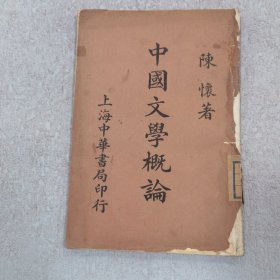 陳懷著
中國文學概論
上海中華書局印行